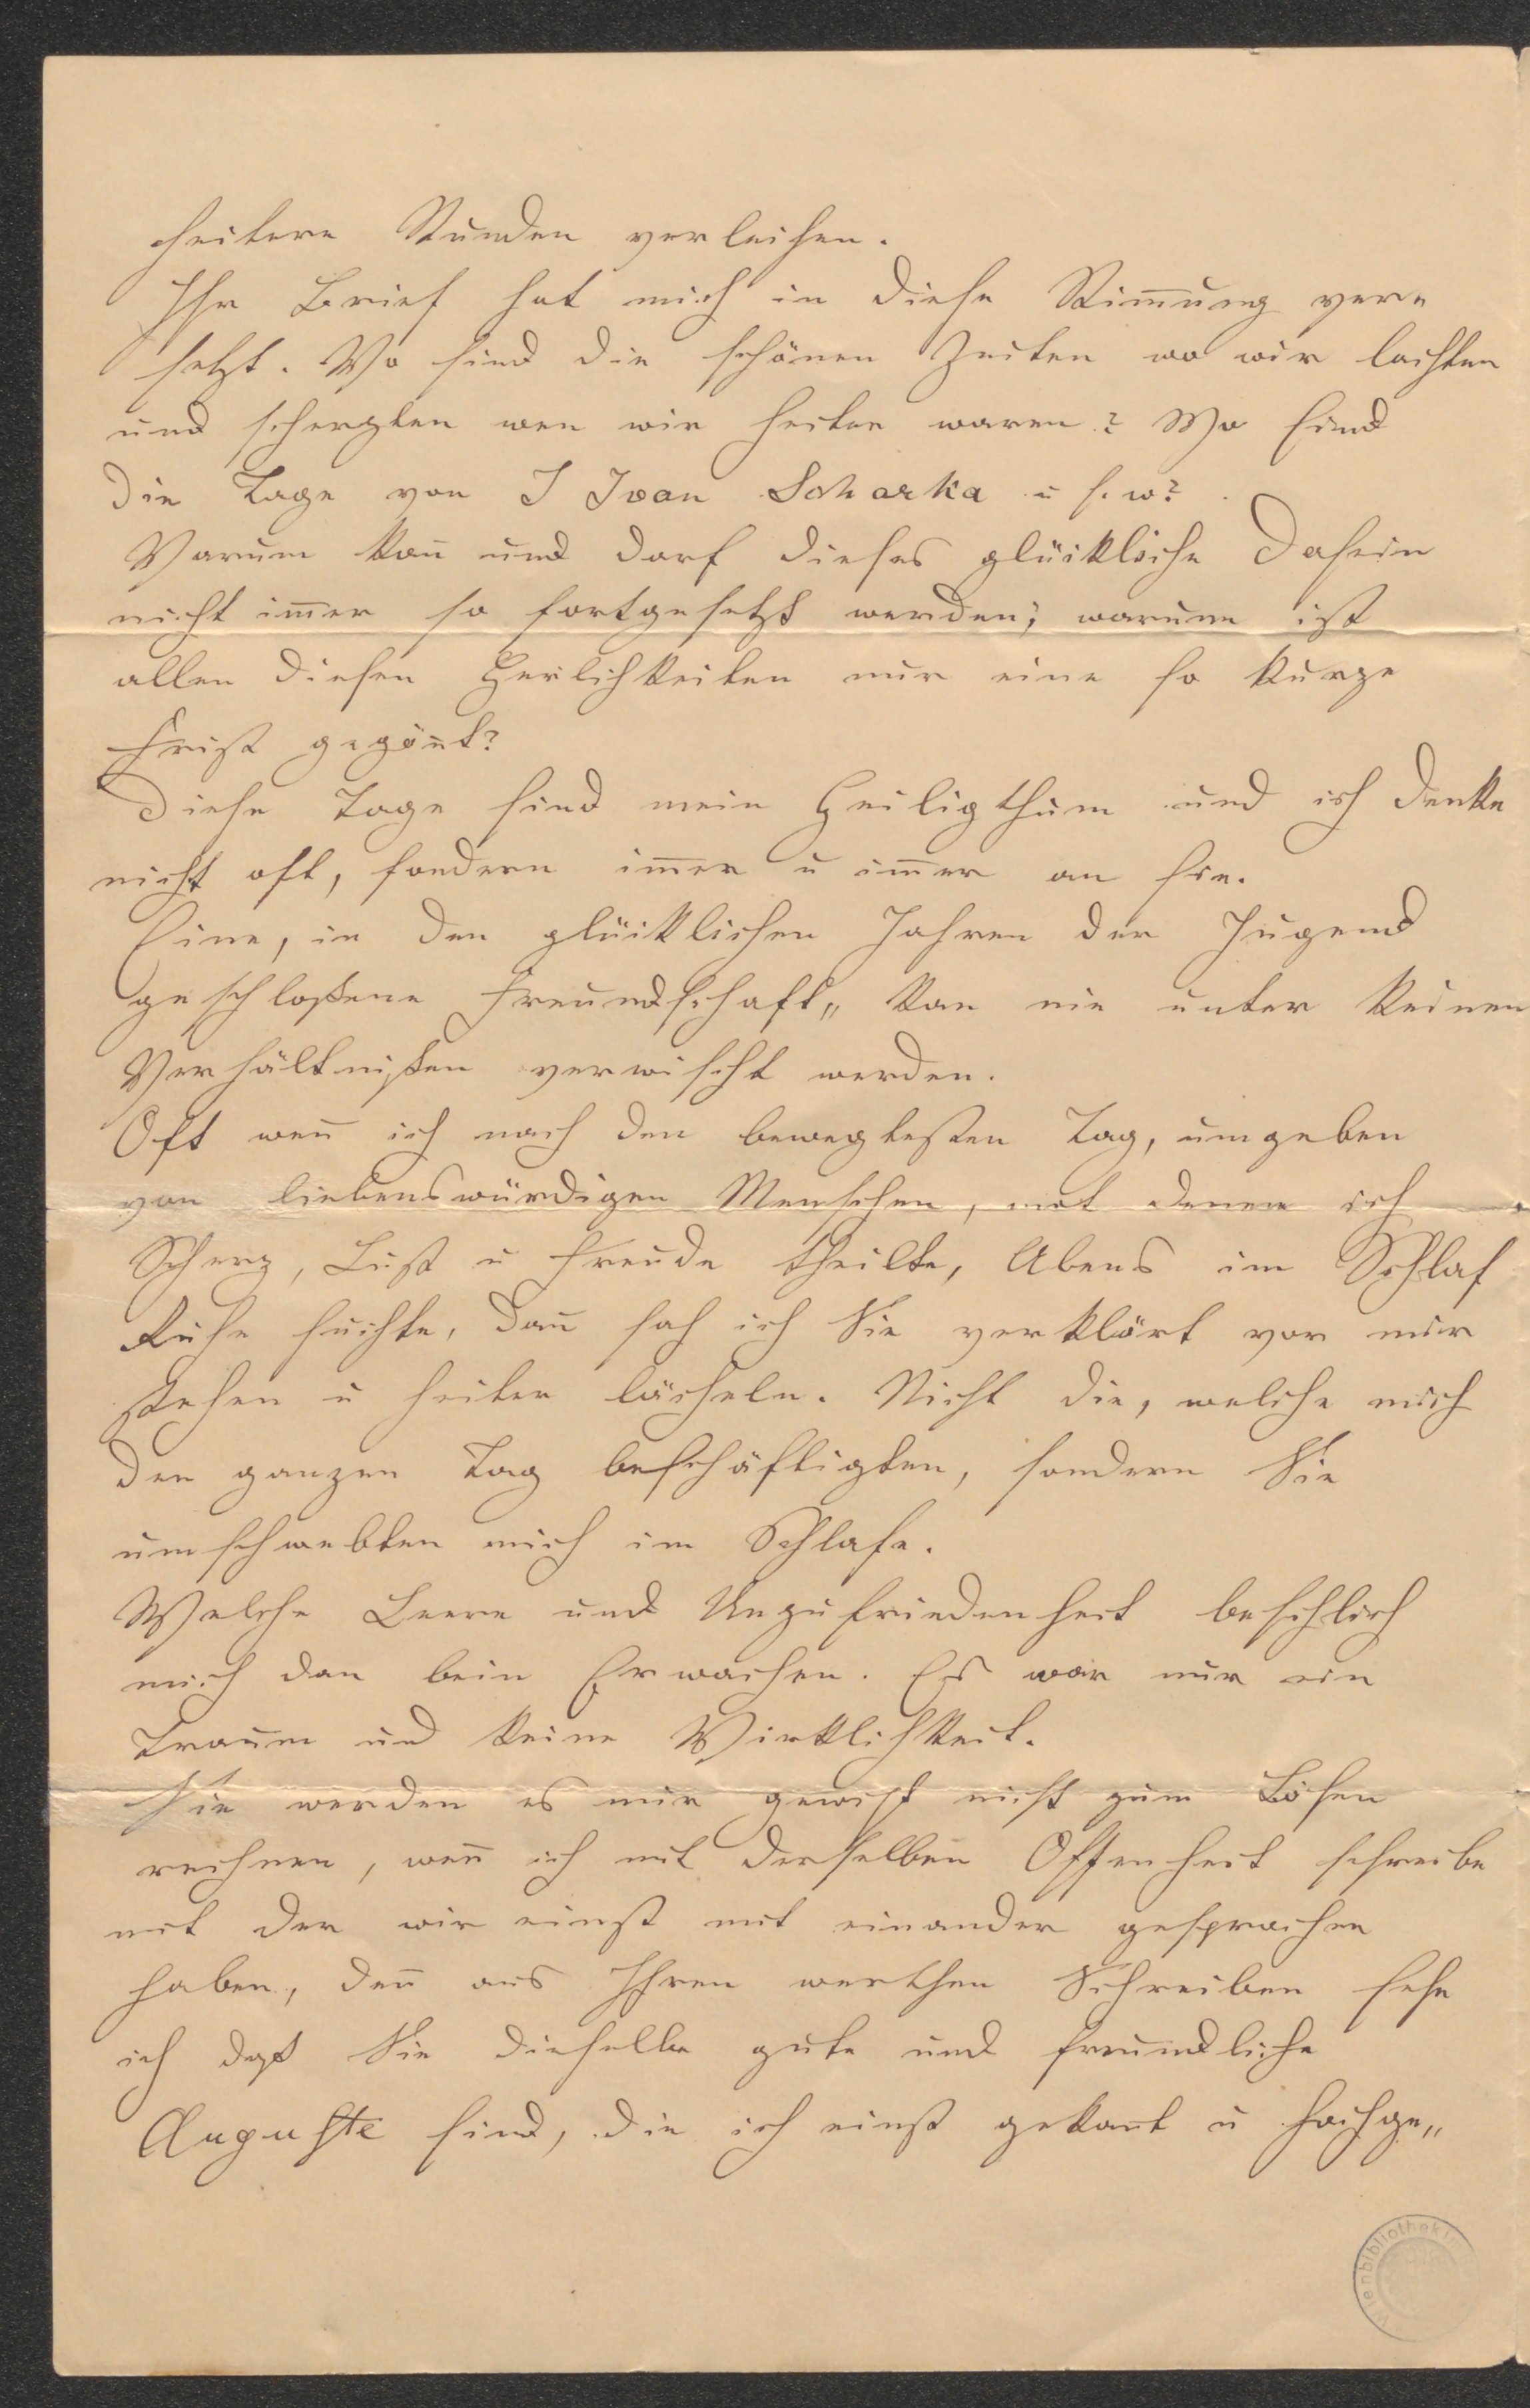 heitere Stunden verleihen.
Ihr Brief hat mich in diese Stim̄ung ver„
setzt. Wo sind die schönen Zeiten wo wir lachten
und scherzten wen wir heiter waren? Wo sind
die Tage von I Ivan Scharka u s. w?
Warum kan̄ und darf dieses glückliche Dasein
nicht im̄er so fortgesetzt werden; warum ist
allen diesen Herlichkeiten nur eine so kurze
Frist gegön̄t?
Diese Tage sind mein Heiligthum und ich denke
nicht oft, sondern im̄er u im̄er an sie.
Eine, in den glücklichen Jahren der Jugend
geschloßene Freundschaft„ kan nie unter keinen
Verhältnißen verwischt werden.
Oft wen̄ ich nach den bewegtesten Tag, umgeben
von liebenswürdigen Menschen, mit denen ich
Scherz, Lust u Freude theilte, Abens im Schlaf
Ruhe suchte, dan̄ sah ich Sie verklärt vor mir
stehen u heiter lächeln. Nicht die, welche mich
den ganzen Tag beschäftigten, sondern Sie
umschwebten mich im Schlafe.
Welche Leere und Unzufriedenheit beschlich
mich dan bein Erwachen. Es war nur ein
Traum und keine Wirklichkeit.
Sie werden es mir gewiß nicht zum Bösen
rechnen, wen̄ ich mit derselben Offenheit schreibe
mit der wir einst mit einander gesprochen
haben, den̄ aus Ihren werthen Schreiben sehe
ich daß Sie dieselbe gute und freundliche
Auguste sind, die ich einst gekan̄t u hochge„
Wienbibliothek i